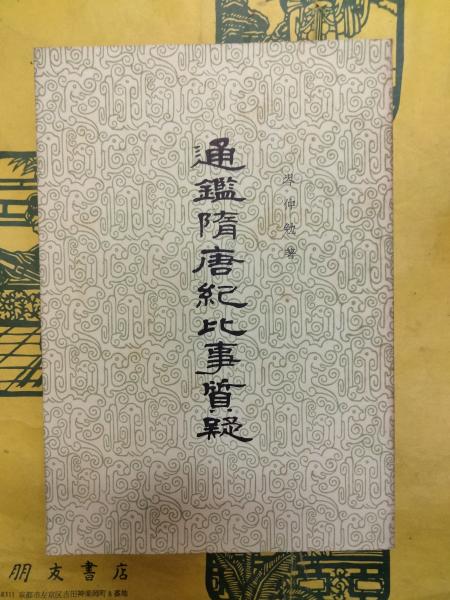 通鑑隋唐紀比事質疑
岑仲勉著
朋友書店
京都市左京区吉田神楽岡町8番地